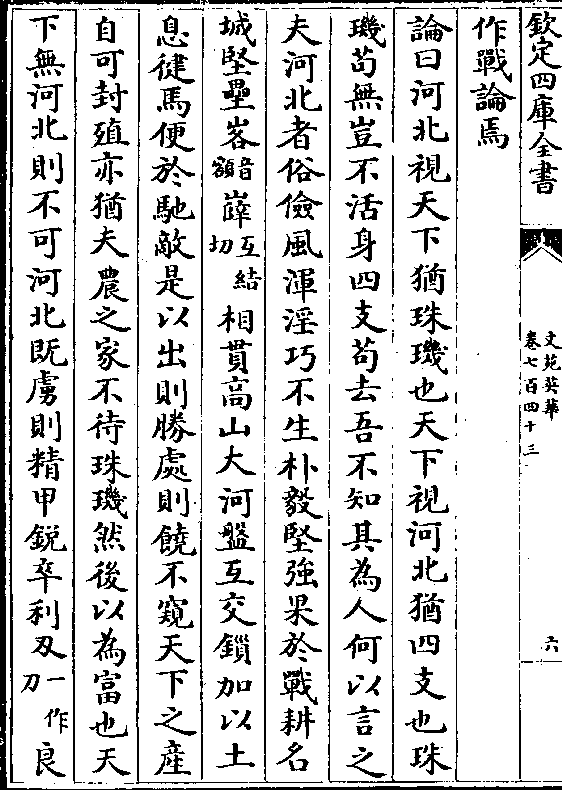 欽定四庫全書
文苑英華
卷七百四十三
六
作戰論焉
論曰河北視天下猶珠璣也天下視河北猶四支也珠
璣苟無豈不活身四支苟去吾不知其為人何以言之
夫河北者俗儉風渾淫巧不生朴毅堅強果於戰耕名
城堅壘峉音額嶭互結切相貫高山大河盤互交鎖加以土
息徤馬便於馳敵是以出則勝處則饒不窺天下之産
自可封殖亦猶夫農之家不待珠璣然後以為富也天
下無河北則不可河北既虜則精甲鋭卒利刄一作刀良